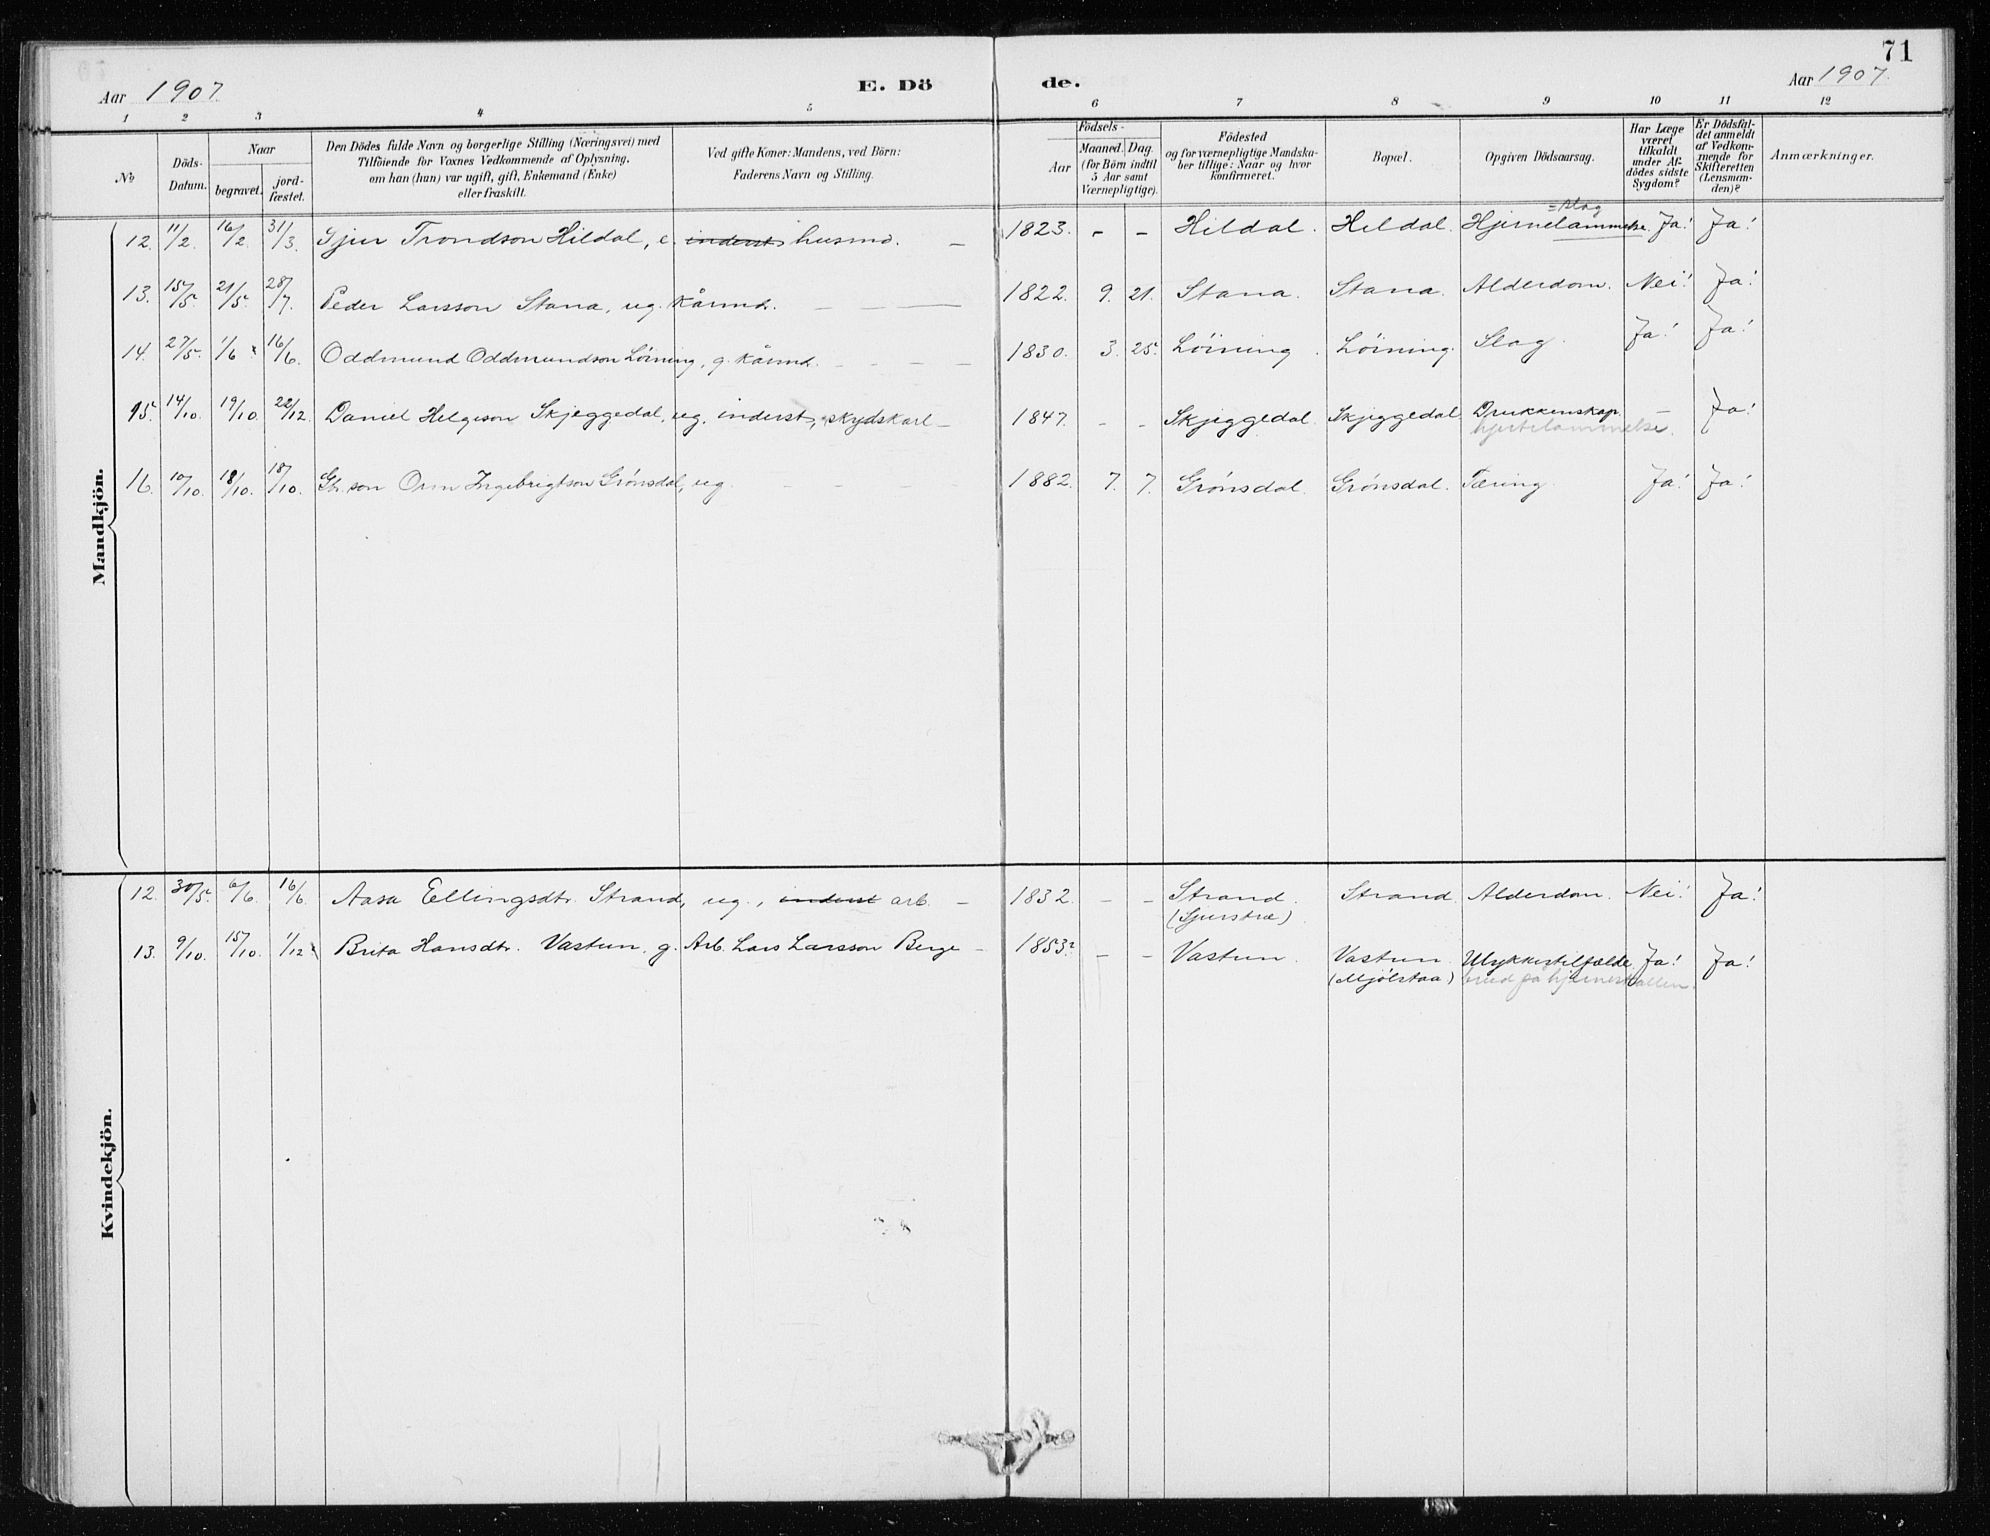 71
Aar 1907. E. Dö de. Aar 1907.
1 2 3 4 5 6 7 8 9 10 11 12
No
Döds-
Datum.
Naar
begravet.
jord-
fæstet.
Den Dödes fulde Navn og borgerlige Stilling (Næringsvei) med
Tilföiende for Voxnes Vedkommende af Oplysning,
om han (hun) var ugift, gift, Enkemand (Enke)
eller fraskilt.
Ved gifte Koner: Mandens, ved Börn:
Faderens Navn og Stilling.
Födsels-
Aar
Maaned.
Dag.
(for Börn indtil
5 Aar samt
Værnepligtige).
Födested
og for værnepligtige Mandska-
ber tillige: Naar og hvor
konfirmeret.
Bopæl.
Opgiven Dödsaarsag.
Har Læge
været
tilkaldt
under Af-
dödes sidste
Sygdom?
Er Dödsfal-
det anmeldt
af Vedkom-
mende for
Skifteretten
(Lensman-
den)?
Anmærkninger.
Mandkjön.
= slag
12. 11/2. 16/2. 31/3. Sjur Trondson Hildal, e. inderst husmd. — 1823. - - Hildal. Hildal. Hjernelammelse. Ja! Ja!
13. 15/5. 21/5. 28/7. Peder Larsson Stana, ug. kårmd. — — — 1822. 9. 21. Stana. Stana. Alderdom. Nei! Ja!
14. 27/5. 1/6 16/6. Oddmund Oddmundson Löining, g. kårmd. — — — — 1830. 3. 25. Löining. Löining. Slag. Ja! Ja!
15. 14/10. 19/10. 22/12. Daniel Helgeson Skjeggedal, ug. inderst, skydskarl — 1847. - - Skjeggedal. Skjeggedal Drukkenskap. — Ja!
hjertelammelse.
16. 10/10. 18/10. 18/10. Gb.son Orm Ingebrigtson Grönsdal, ug. — — — — 1882. 7. 7. Grönsdal. Grönsdal. Tæring. Ja! Ja!
Kvindekjön.
12. 30/5. 6/6. 16/6. Aasa Ellingsdtr. Strand, ug., inderst arb. — 1832. - - Strand. Strand. Alderdom. Nei! Ja!
(Sjurstræ)
13. 9/10. 15/10. 1/12. Brita Hansdtr. Vastun, g. Arb. Lars Larsson Berge — 1853? - - Vastun. Vastun. Ulykkestilfælde. Ja! Ja!
(Mjölstaa) brud på hjerneskallen.